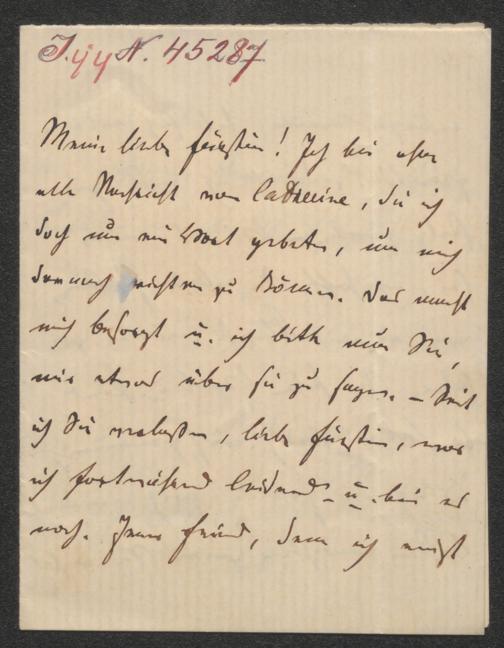 I. N. 45287
Meine liebe Fürstin! Ich bin ohne
alle Nachricht von Catherine, die ich
doch um ein Wort gebeten, um mich
darnach richten zu können. Das macht
mich besorgt u. ich bitte nun Sie,
mir etwas über sie zu sagen. – Seit
ich Sie verlassen, liebe Fürstin, war
ich fortwährend leidend u. bin es
noch. Jener Feind, dem ich nicht